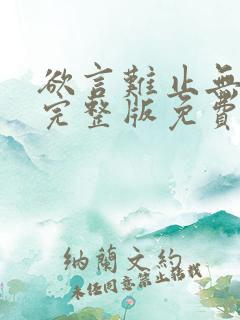 欲言難止無
完整版免費
納蘭文約
未任同意禁止搭載